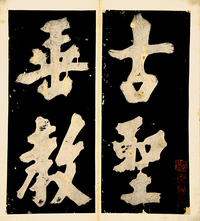 古聖
垂教